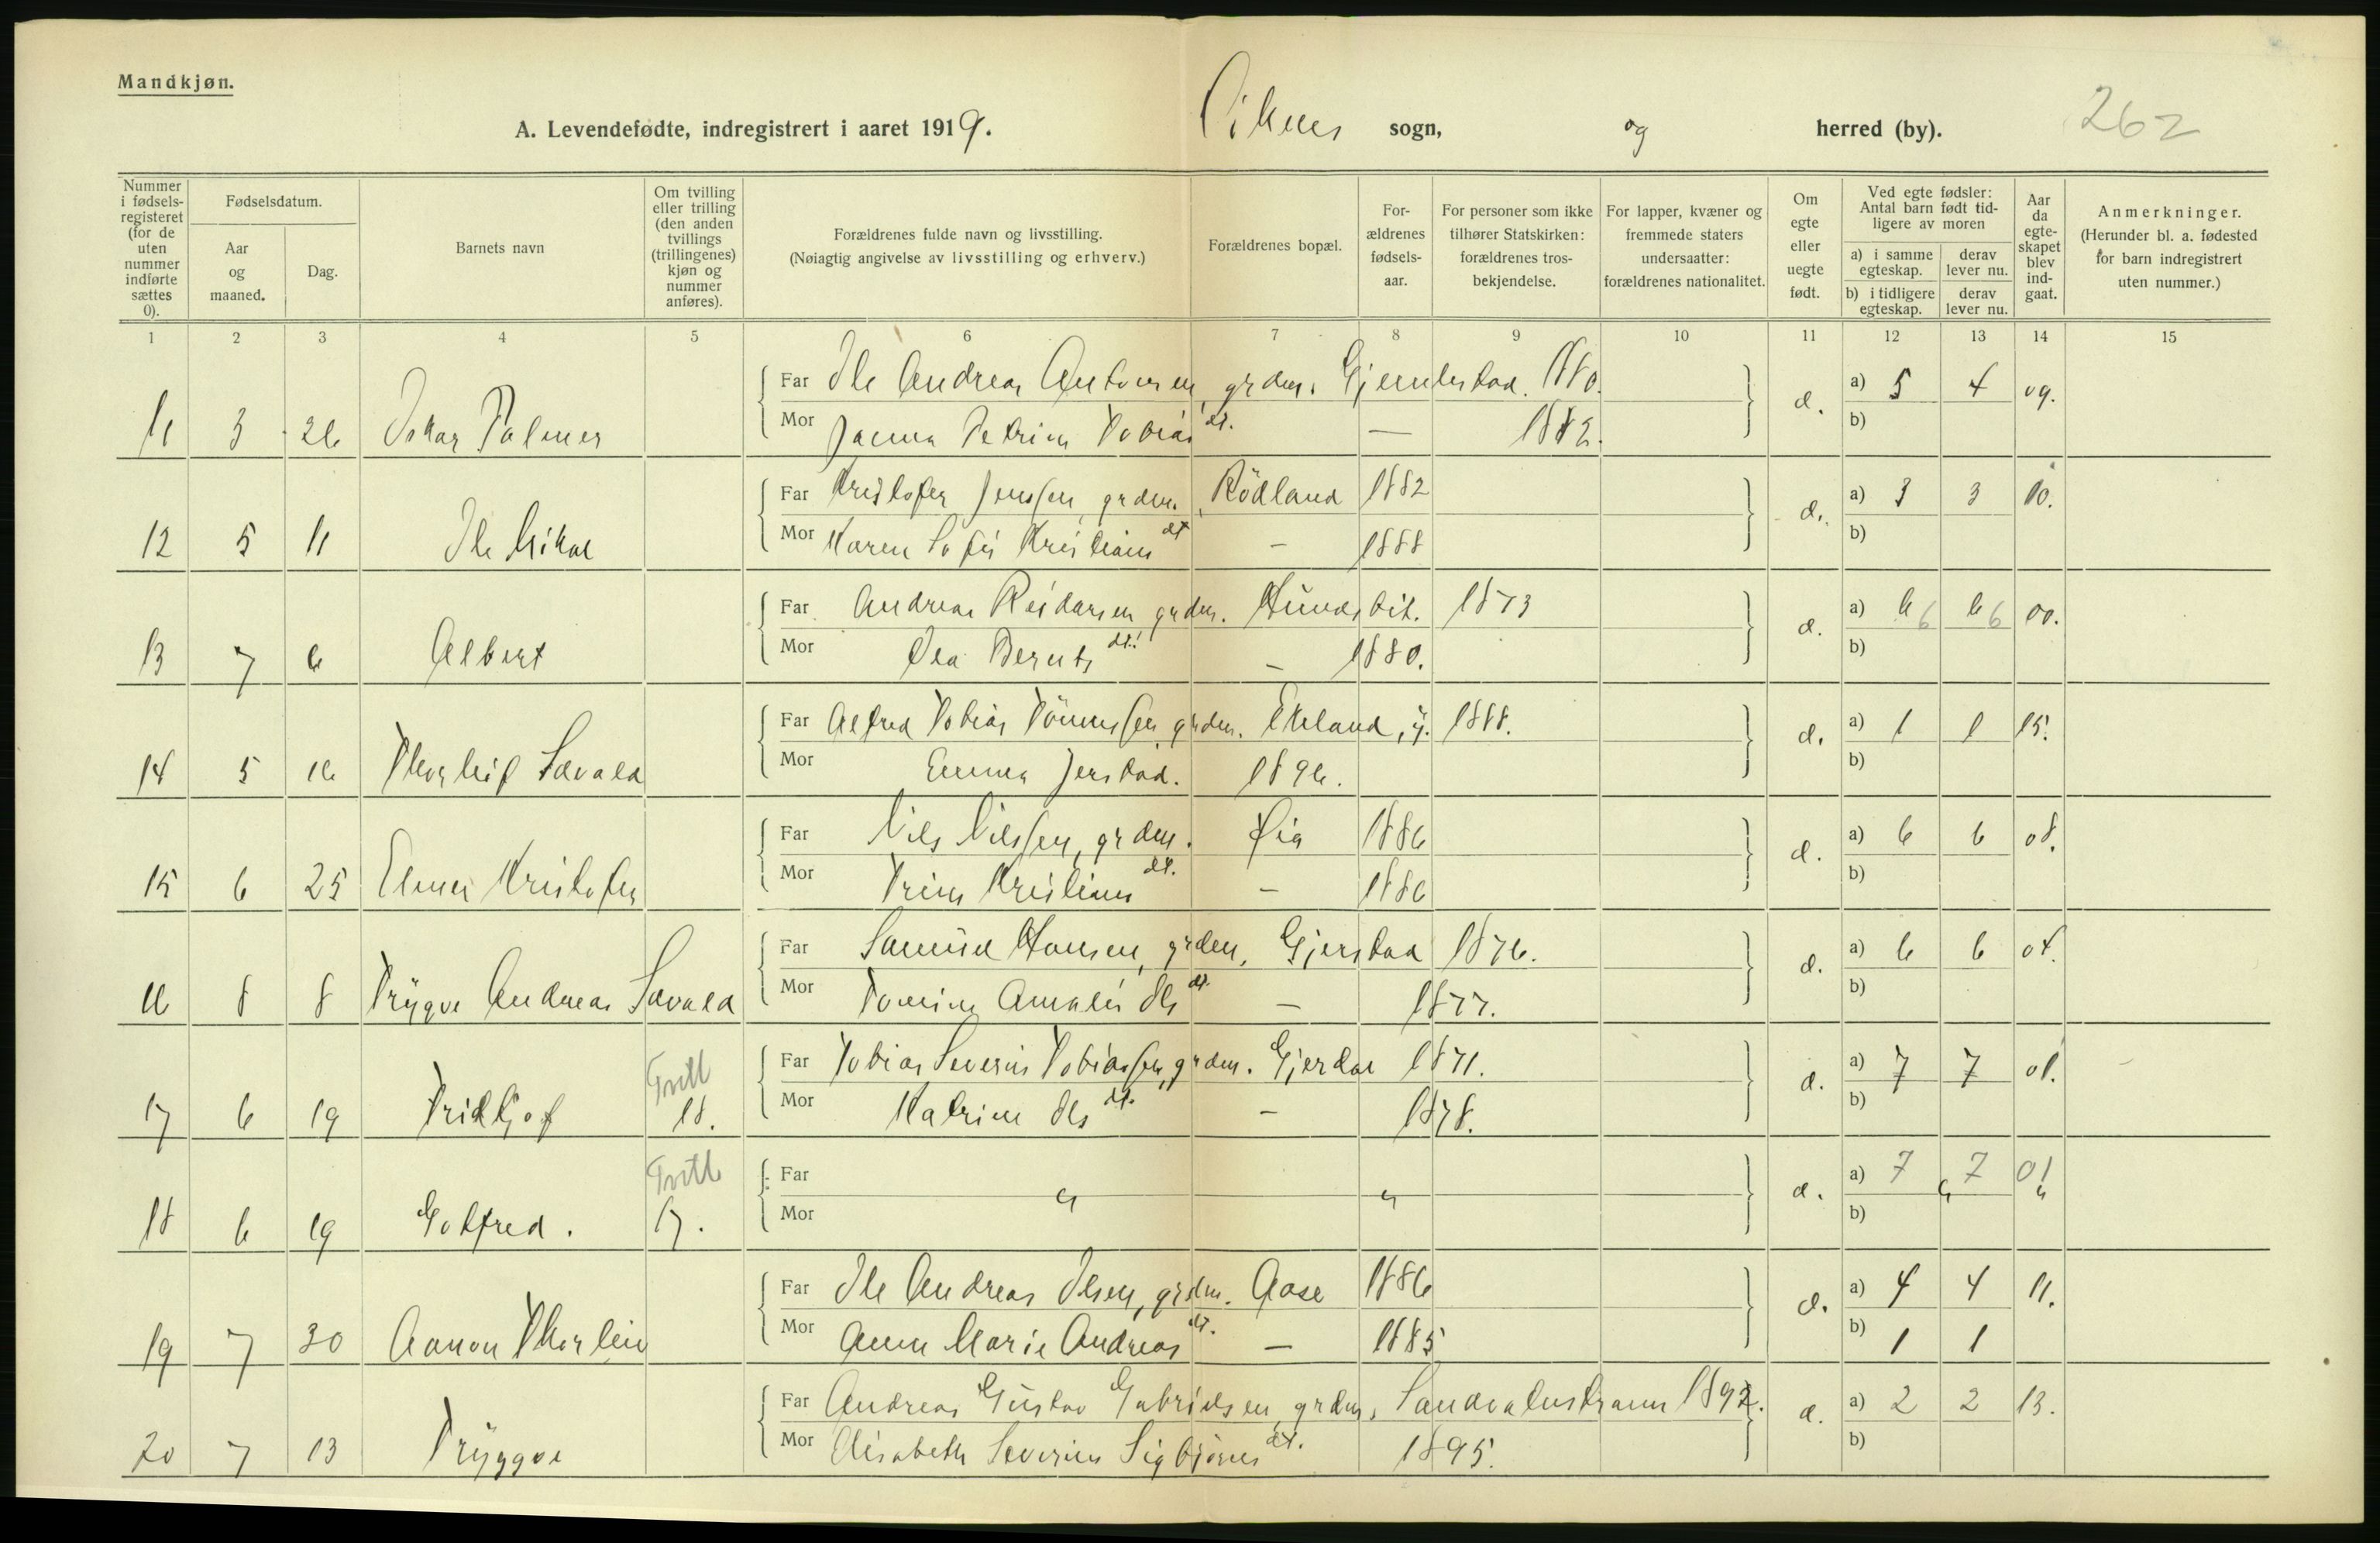 Mandkjøn.
A. Levendefødte, indregistrert i aaret 1919. sogn, og herred (by). 262
Nummer i fødselsregisteret (for de uten nummer indførte sættes 0).
Fødselsdatum.
Aar og maaned.
Dag.
Barnets navn
Om tvilling eller trilling (den anden tvillings (trillingenes) kjøn og nummer anføres).
Forældrenes fulde navn og livsstilling.
(Nøiagtig angivelse av livsstilling og erhverv.)
Forældrenes bopæl.
Forældrenes fødselsaar.
For personer som ikke tilhører Statskirken: forældrenes trosbekjendelse.
For lapper, kvæner og fremmede staters undersaatter: forældrenes nationalitet.
Om egte eller uegte født.
Ved egte fødsler: Antal barn født tidligere av moren
a) i samme egteskap.
derav lever nu.
b) i tidligere egteskap.
derav lever nu.
Aar da egteskapet blev indgaat.
Anmerkninger.
(Herunder bl. a. fødested for barn indregistrert uten nummer.)
1 2 3 4 5 6 7 8 9 10 11 12 13 14 15
Far Ole Andreas Antonsen, grdm. 1880. a) 5 4 09.
11 3 26 Oskar Palmer Mor Petrine Tobias dt. — 1882. b)
Far Kristofer Jenssen, grdm. Rödland 1882 a) 3 3 10.
12 5 11 Ole Mikal Mor Maren Sofie Kristians dt — 1888 b)
Far Andreas Reidarsen grdm. 1873 a) 6 6 6 6 00.
13 7 6 Albert Mor Bernts dt. — 1880. b)
Far Alfred Tobias Tönnessen grdm. Ekeland, y. 1888. a) 1 1 15.
14 5 16 Thorleif Sevald Mor Emma Jerstad. 1896. b)
Far Nils Nilssen, grdm. Øia 1886 a) 6 6 08.
15 6 25 Elmer Kristofer Mor Trine Kristians dt. — 1886 b)
Far Samuel Hansen, grdm. Gjerstad 1876. a) 6 6 04.
16 8 8 Trygve Andreas Sevald Mor Tomine Amalie Ols dt. — 1877. b)
Far Tobias Severin Tobiassen, grdm. Gjerdal 1871. a) 7 7 01.
17 6 19 Fridtjof Tvill 18. Mor Katrine Ols dt. — 1878. b)
Far a) 7 7 01
18 6 19 Gotfred. Tvill 17. Mor b)
Far Ole Andreas Olsen, grdm. Aase 1886 a) 4 4 11.
19 7 30 Aanon Thorleiv Mor Anne Marie Andreas dt. — 1885 b) 1 1
Far Andreas Gustav Gabrielsen, grdm. 1892. a) 2 2 13.
20 7 13 Tryggve Mor Elisabeth Severine Sigbjörns dt. 1895. b)